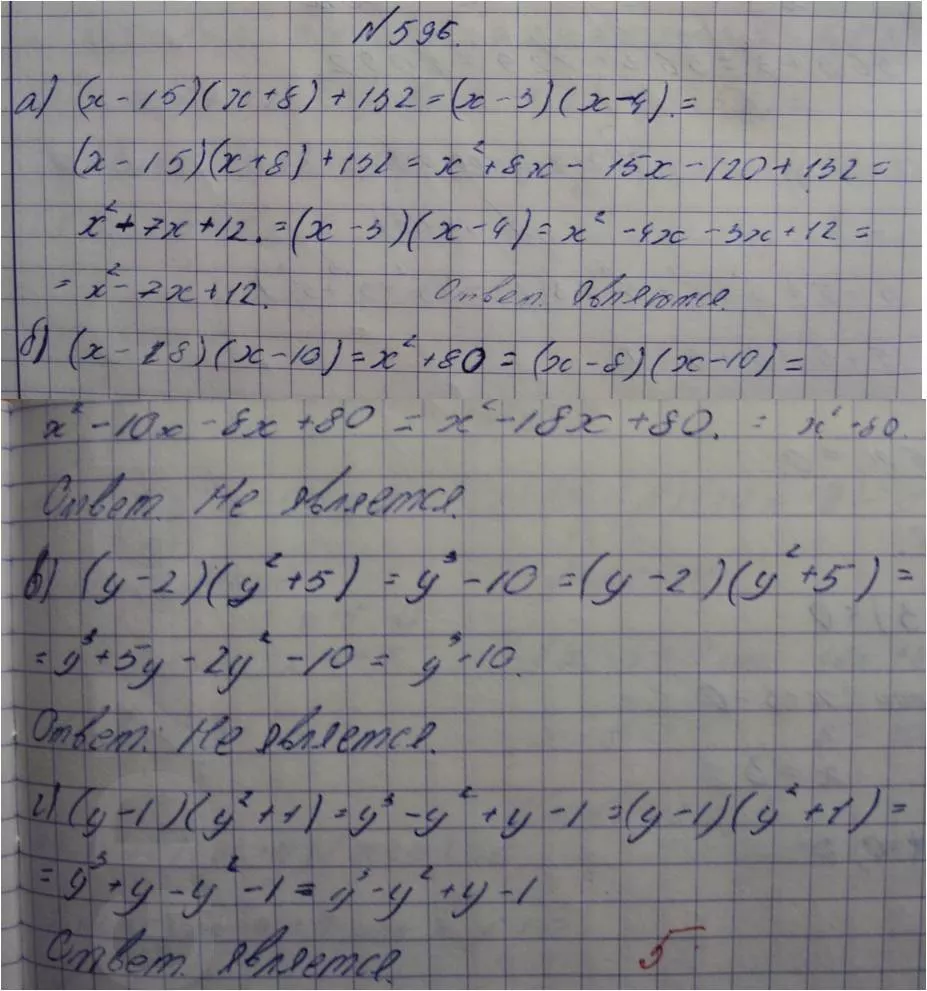 № 596.
а) (x-15)(x+8)+132=(x-3)(x-4).=
(x-15)(x+8)+132=x²+8x-15x-120+132=
x²+7x+12.=(x-3)(x-4)=x²-4x-3x+12=
=x²-7x+12. Ответ. Являются.
б) (x-18)(x-10)=x²+80=(x-8)(x-10)=
x²-10x-8x+80=x²-18x+80.=x²+80.
Ответ. Не является.
в) (y-2)(y²+5)=y³-10=(y-2)(y²+5)=
=y³+5y-2y²-10=y³-10.
Ответ. Не является.
г) (y-1)(y²+1)=y³-y²+y-1=(y-1)(y²+1)=
=y³+y-y²-1=y³-y²+y-1
Ответ. является.
5